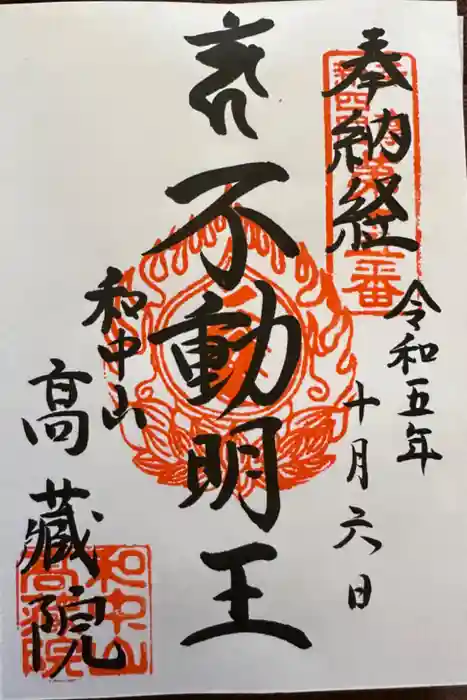 奉納経
令和五年
十月六日
不動明王
和中山
高蔵院
和中山
高蔵院